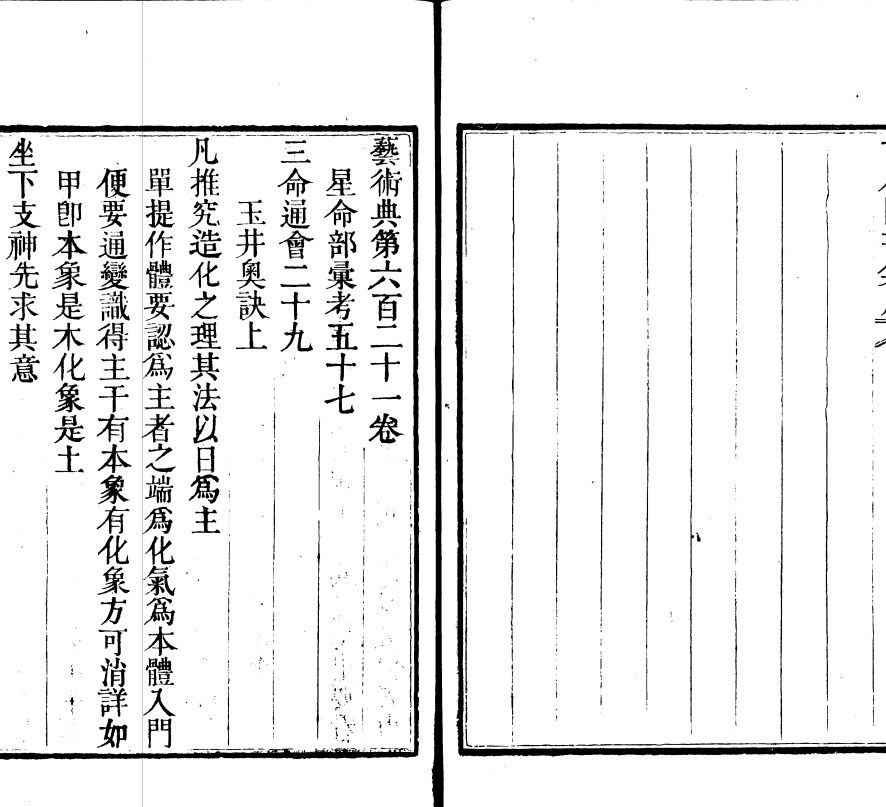 藝術典第六百二十一卷
星命部彙考五十七
三命通會二十九
玉井奧訣上
凡推究造化之理其法以日爲主
單提作體要認爲主者之端爲化氣爲本體入門
便要通變識得主干有本象有化象方可消詳如
甲卽本象是木化象是土
坐下支神先求其意